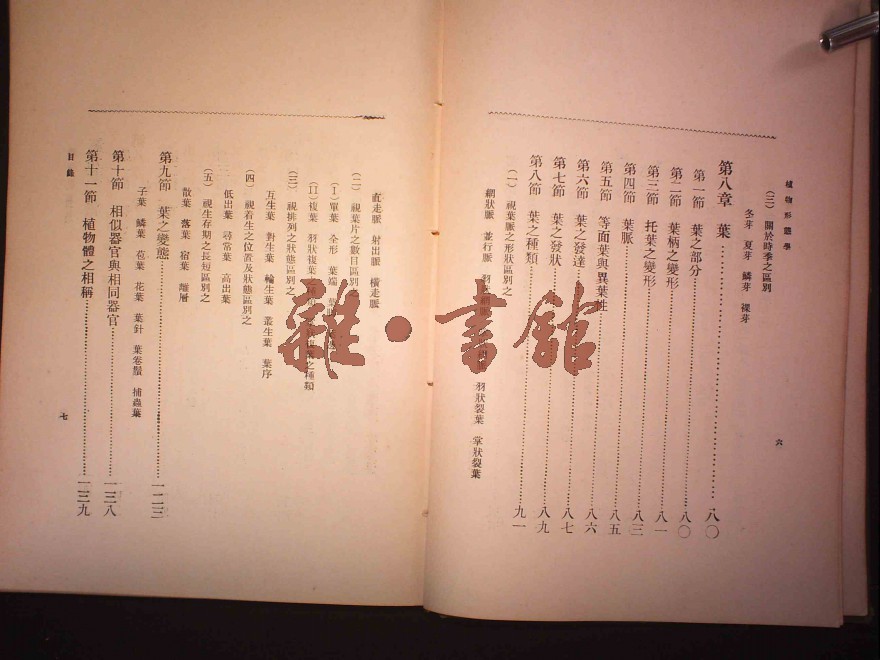 植物形態學
六
(三) 關於時季之區別
冬芽 夏芽 鱗芽 裸芽
第八章 葉 八〇
第一節 葉之部分 八〇
第二節 葉柄之變形 八一
第三節 托葉之變形 八三
第四節 葉脈 八五
第五節 等面葉與異葉性 八六
第六節 葉之發達 八七
第七節 葉之發狀 八九
第八節 葉之種類 九一
(一) 視葉脈之形狀區別之
網狀脈 並行脈 羽狀網脈 羽狀裂葉 掌狀裂葉
直走脈 射出脈 橫走脈
(二) 視葉片之數目區別之
(1) 單葉 全形 葉端
(11) 複葉 羽狀複葉之種類 之種類
(三) 視排列之狀態區別之
互生葉 對生葉 輪生葉 叢生葉 葉序
(四) 視着生之位置及狀態區別之
低出葉 尋常葉 高出葉
(五) 視生存期之長短區別之
散葉 落葉 宿葉 離層
第九節 葉之變態 一二三
子葉 鱗葉 苞葉 花葉 葉針 葉卷鬚 捕蟲葉
第十節 相似器官與相同器官 一三八
第十一節 植物體之相稱 一三九
目錄
七
雜·書館